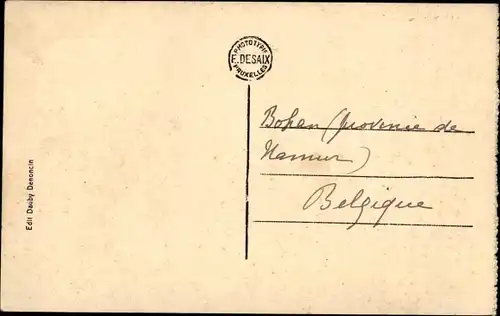 PHOTOTYPIE
E. DESAIX
BRUXELLES
Bohan (provenie de
Namur)
Belgique
Edit Dauby Denoncin